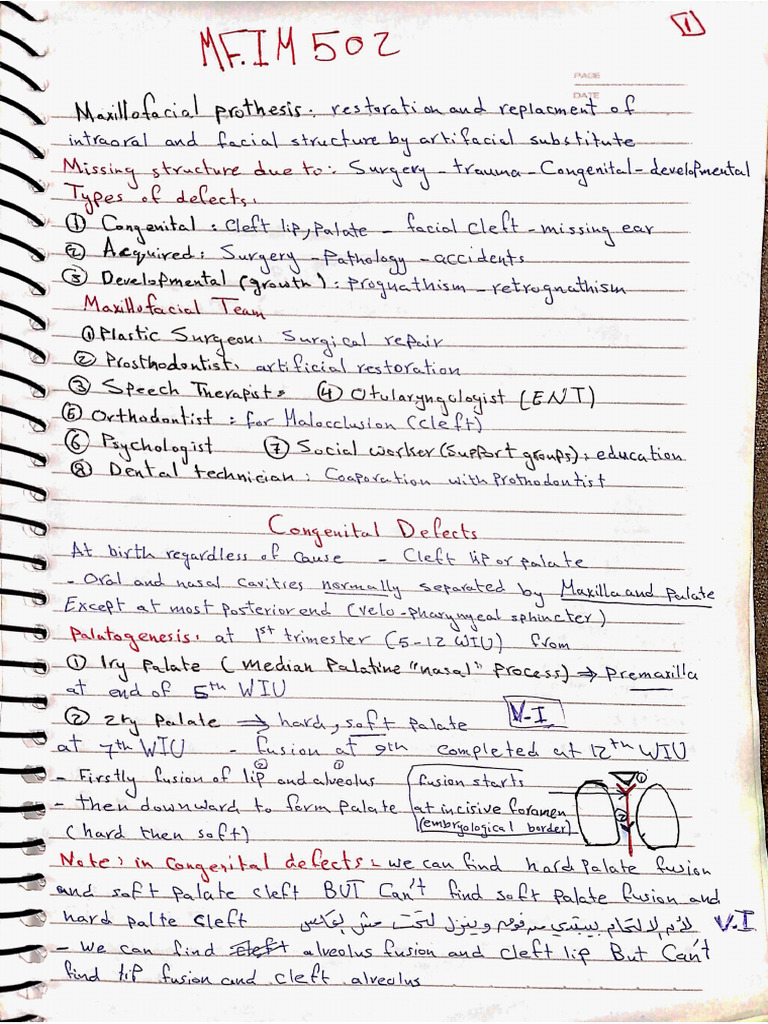 1
MF.IM 502
PAGE
DATE
Maxillofacial prothesis: restoration and replacment of
intraoral and facial structure by artifacial substitute
Missing structure due to: Surgery - trauma - Congenital - developmental
Types of defects:
① Congenital: Cleft lip, palate - facial cleft - missing ear
② Acquired: Surgery - Pathology - accidents
③ Developmental (growth): prognathism - retrognathism
Maxillofacial Team
① Plastic Surgeon: Surgical repair
② Prosthodontist: artificial restoration
③ Speech Therapist: ④ Otularyngologist (ENT)
⑤ Orthodontist: for Malocclusion (cleft)
⑥ Psychologist ⑦ Social worker (support groups): education
⑧ Dental technician: Cooporation with Prothodontist
Congenital Defects
At birth regardless of cause - Cleft lip or palate
- Oral and nasal cavities normally separated by Maxilla and palate
Except at most posterior end (velo-pharyngeal sphincter)
Palatogenesis: at 1st trimester (5-12 WIU) from
① 1ry palate (median Palatine "nasal" process) ⇒ premaxilla
at end of 5th WIU
② 2ry palate ⇒ hard, soft palate V.I
at 7th WIU - fusion at 9th completed at 12th WIU
- Firstly fusion of lip② and alveolus①
- then downward to form palate
(hard then soft)
fusion starts
at incisive foramen
(embryological border)
①
②
Note: in Congenital defects: we can find hard palate fusion
and soft palate cleft BUT Can't find soft palate fusion and
hard palte cleft لأن الالتحام بيبتدي من فوق وينزل لتحت مش العكس V.I
- we can find alveolus fusion and cleft lip But Can't
find lip fusion and cleft alveolus